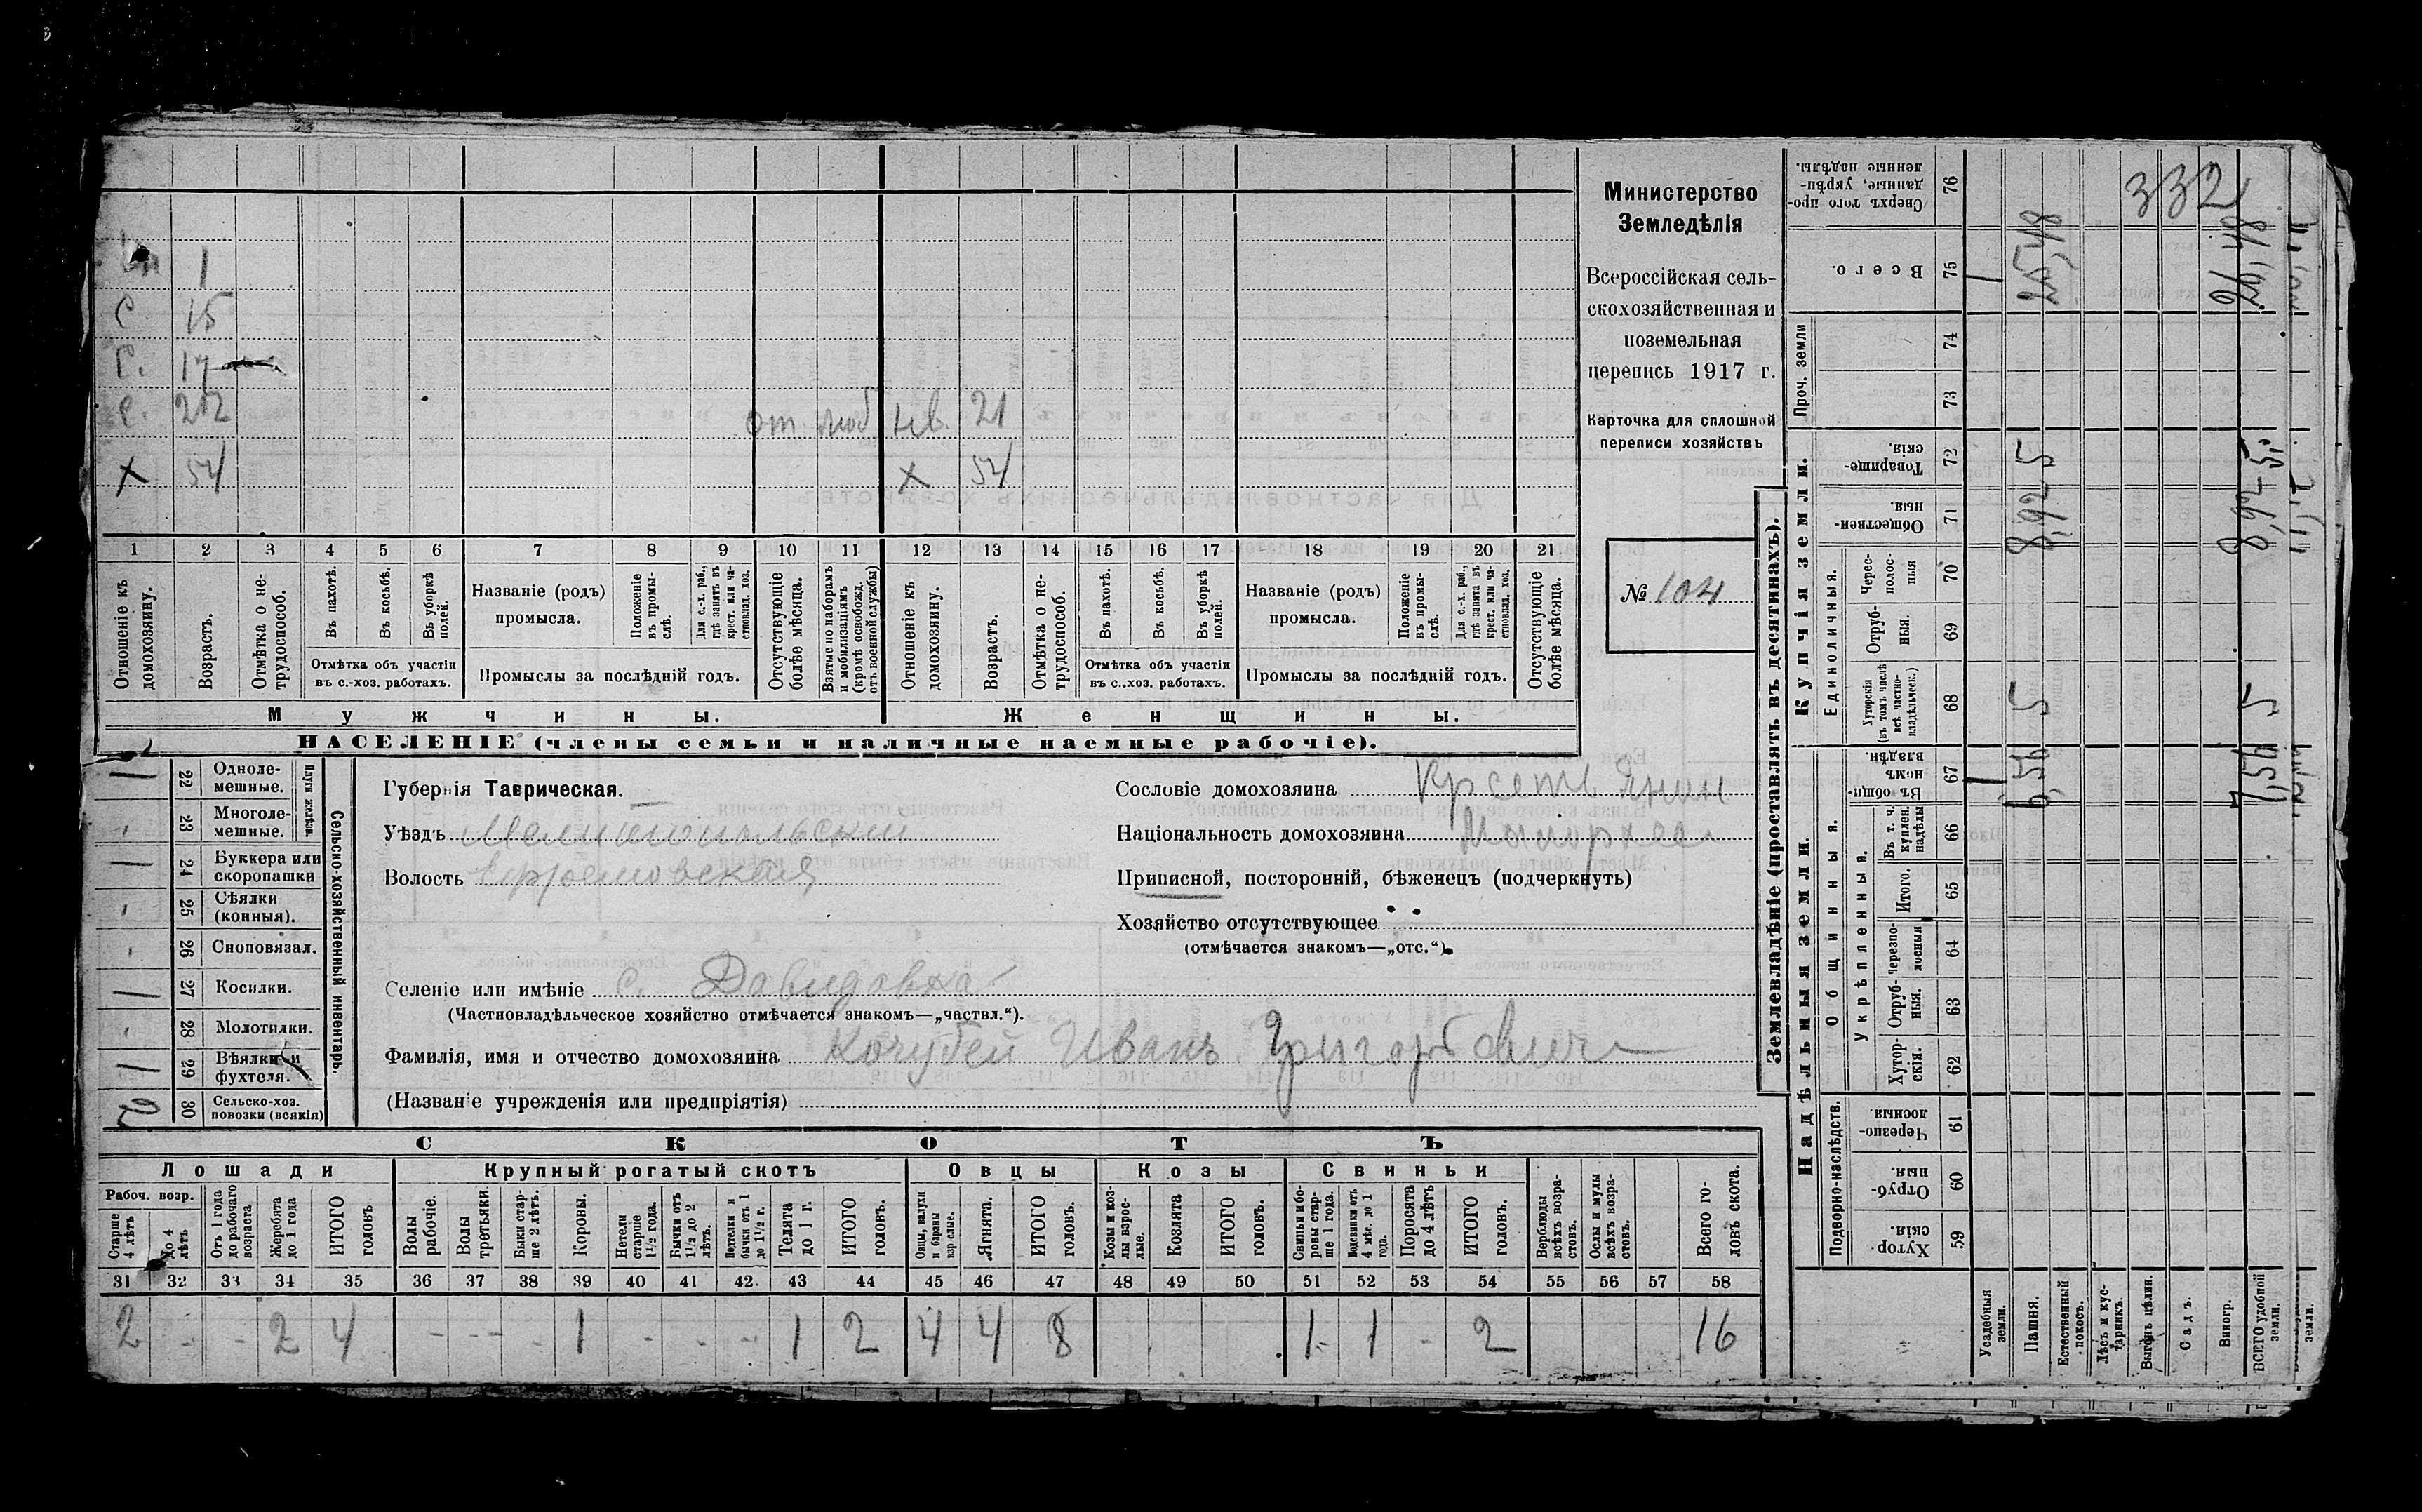 Министерство
Земледѣлія
Всероссійская сель-
скохозяйственная и
поземельная
перепись 1917 г.
Карточка для сплошной
переписи хозяйствъ
№ 104
1
С 15
С. 17
С. 22 от моб нев. 21
Х 54 Х 54
1 2 3 4 5 6 7 8 9 10 11 12 13 14 15 16 17 18 19 20 21
Отношеніе къ домохозяину.
Возрастъ.
Отмѣтка о не-трудоспособ.
Въ пахотѣ.
Въ косьбѣ.
Въ уборкѣ полей.
Отмѣтка объ участіи
въ с.-хоз. работахъ.
Названіе (родъ)
промысла.
Положеніе въ промы-слѣ.
Для с.-х. раб., гдѣ занятъ въ крест. или ча-стновлад. хоз.
Промыслы за послѣдній годъ.
Отсутствующіе болѣе мѣсяца.
Взятые по наборамъ и мобилизаціямъ (кромѣ освобожд. отъ военной службы)
Отношеніе къ домохозяину.
Возрастъ.
Отмѣтка о не-трудоспособ.
Въ пахотѣ.
Въ косьбѣ.
Въ уборкѣ полей.
Отмѣтка объ участіи
въ с..хоз. работахъ.
Названіе (родъ)
промысла.
Положеніе въ промы-слѣ.
Для с.-х. раб., гдѣ занята въ крест. или ча-стновлад. хоз.
Промыслы за послѣдній годъ.
Отсутствующіе болѣе мѣсяца.
Мужчины.
Женщины.
НАСЕЛЕНІЕ (члены семьи и наличные наемные рабочіе).
Сельско-хозяйственный инвентарь.
Плуги желѣзн.
1 22 Одноле-мешные.
23 Многоле-мешные.
1 24 Буккера или скоропашки
25 Сѣялки (конныя).
26 Сноповязал.
1 27 Косилки.
28 Молотилки.
1 29 Вѣялки и фухтеля.
30 Сельско-хоз. повозки (всякія)
Губернія Таврическая.
Уѣздъ Мелитопольскій
Волость Ефремовская
Сословіе домохозяина Крестьянин
Національность домохозяина Малоросс
Приписной, посторонній, бѣженецъ (подчеркнуть)
Хозяйство отсутствующее
(отмѣчается знакомъ—„отс.“).
Селеніе или имѣніе с. Давидовка
(Частновладѣльческое хозяйство отмѣчается знакомъ—„частвл.“).
Фамилія, имя и отчество домохозяина Кочубей Иванъ Григорьевич
(Названіе учрежденія или предпріятія)
СКОТЪ
Лошади
Крупный рогатый скотъ
Овцы
Козы
Свиньи
Рабоч. возр.
Старше 4 лѣтъ
До 4 лѣтъ
Отъ 1 года до рабочаго возраста
Жеребята до 1 года
ИТОГО головъ
Волы рабочіе.
Волы третьяки.
Быки стар-ше 2 лѣтъ.
Коровы.
Нетели старше 1½ года.
Бычки отъ 1½ до 2 лѣтъ.
Подтелки и бычки отъ 1 до 1½ г.
Телята до 1 г.
ИТОГО головъ.
Овцы, валухи и бараны взрослые.
Ягнята.
ИТОГО головъ.
Козы и коз-лы взрос-лые.
Козлята
ИТОГО головъ.
Свиньи и бо-ровы стар-ше 1 года.
Подсвинки отъ 4 мѣс. до 1 года.
Поросята до 4 лѣтъ
ИТОГО головъ.
Верблюды всѣхъ возра-стовъ.
Ослы и мулы всѣхъ возра-стовъ.
Всего го-ловъ скота.
31 32 33 34 35 36 37 38 39 40 41 42 43 44 45 46 47 48 49 50 51 52 53 54 55 56 57 58
2 - - 2 4 - - - 1 - - - 1 2 4 4 8 1 1 - 2 16
Землевладѣніе (проставлять въ десятинахъ).
Надѣльныя земли.
Купчія земли.
Подворно-наслѣдств.
Общинныя.
Укрѣпленныя.
Единоличныя.
Проч. земли
Хутор-скія 59
Отруб-ныя 60
Черезпо-лосныя. 61
Хутор-скія. 62
Отруб-ныя. 63
Черезпо-лосныя 64
Итого. 65
Въ т. ч. куплен. надѣлы 66
Въ общи-номъ владѣн. 67
Хуторскія (въ томъ числѣ всѣ частно-владѣльческ.) 68
Отруб-ныя. 69
Черес-полос-ныя 70
Обществен-ныя. 71
Товарище-скія. 72
73
74
Всего. 75
Сверхъ того про-данные, укрѣп-ленные надѣлы. 76
Усадебныя земли. 1 1
Пашня. 6,56 5 8,92 5 25,48
Естественный покосъ.
Лѣсъ и кус-тарникъ.
Выгонъ цѣлин.
Садъ.
Виногр.
ВСЕГО удобной земли. 7,56 5 8,92 5 26,48
земли.
332